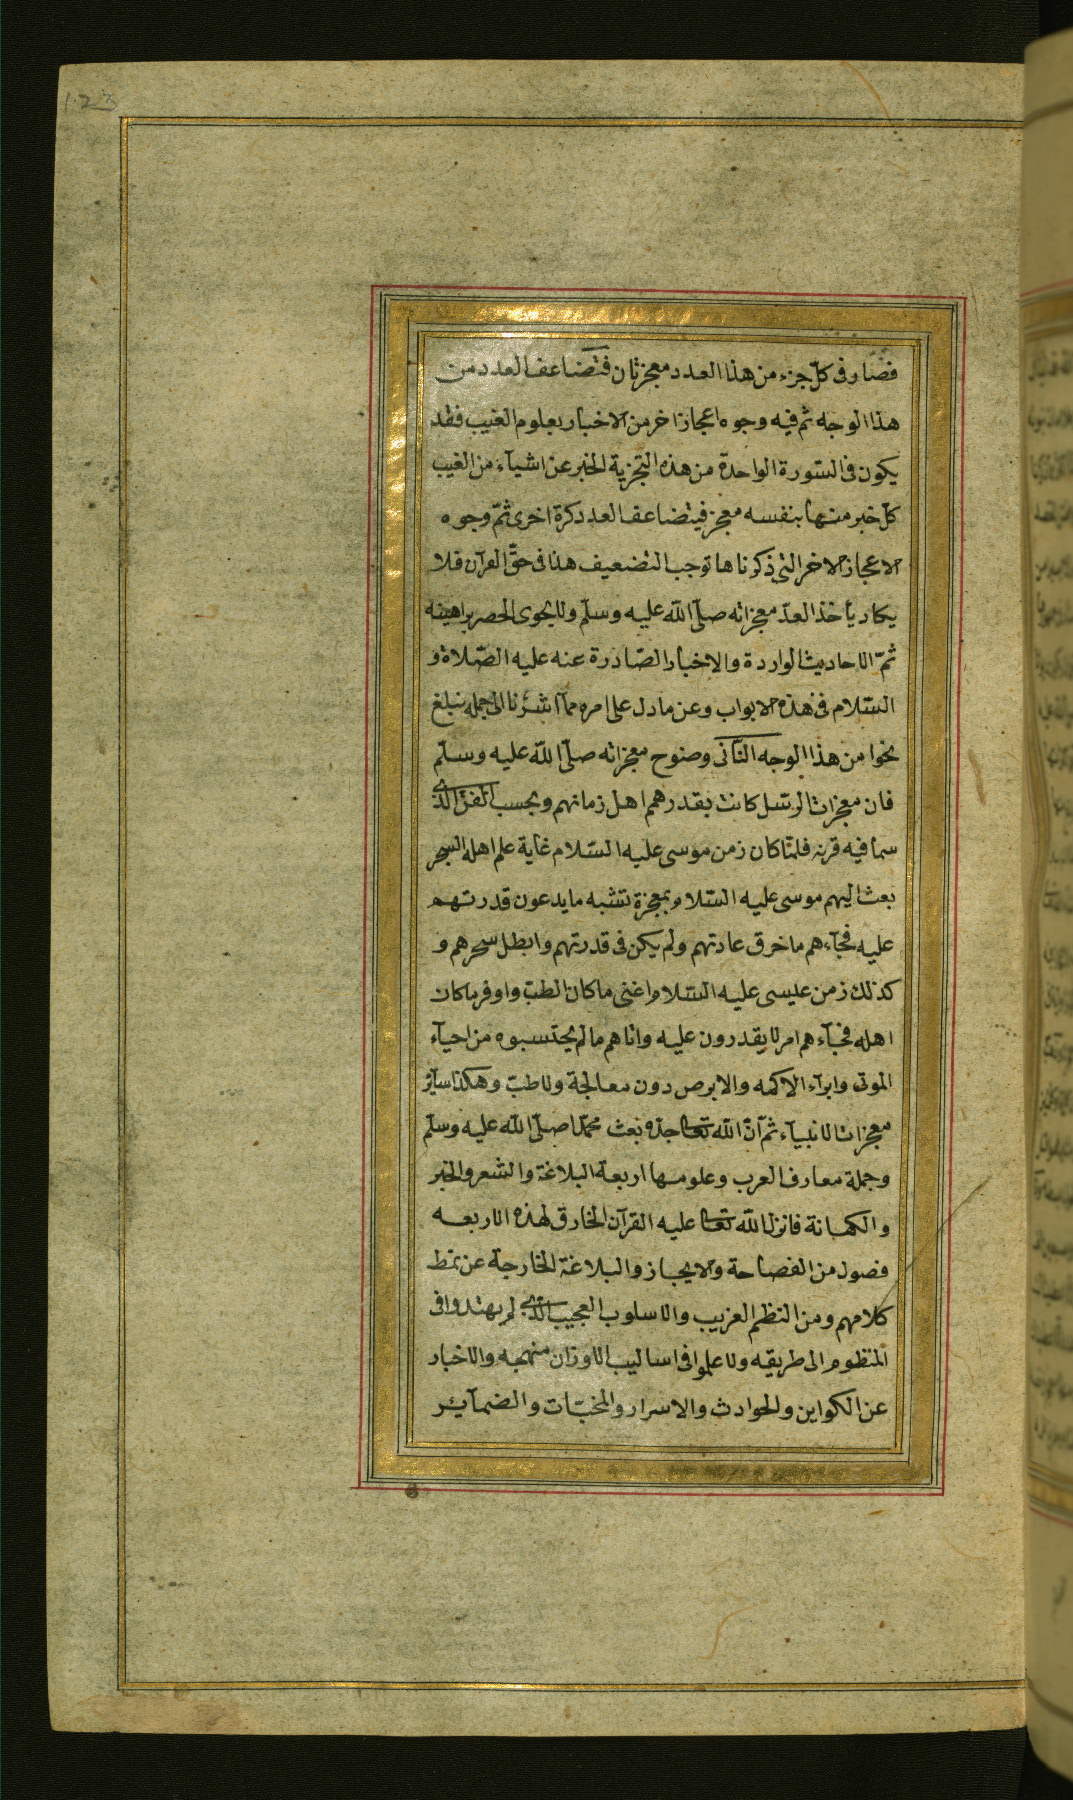 123
فصار فى كلّ جزء من هذا العدد معجزتان فتضاعف العدد من
هذا الوجه ثم فيه وجوه اعجاز اخر من الاخبار بعلوم الغيب فقد
يكون فى السّورة الواحدة من هذه التجزية الخبر عن اشيآء من الغيب
كلّ خبر منها بنفسه معجز فيتضاعف العدد كرة اخرى ثمّ وجوه
الاعجاز الاخر التى ذكرناها توجب التضعيف هذا فى حقّ القرآن فلا
يكاد يأخذ العدّ معجزاته صلّى اللّه عليه وسلّم ولا يحوى الحصر براهينه
ثمّ الاحاديث الواردة والاخبار الصّادرة عنه عليه الصّلاة و
السّلام فى هذه الابواب وعن ما دل على امره ممّا اشرنا الى جمله يبلغ
نحوا من هذا الوجه الثّانى وضوح معجزاته صلّى اللّه عليه وسلّم
فان معجزات الرسل كانت بقدر همم اهل زمانهم وبحسب الفنّ الذى
سما فيه قرنه فلمّا كان زمن موسى عليه السّلام غاية علم اهله السحر
بعث اليهم موسى عليه السّلام بمعجزة تشبه ما يدعون قدرتهم
عليه فجآءهم ما خرق عادتهم ولم يكن فى قدرتهم وابطل سحرهم و
كذلك زمن عيسى عليه السّلام اغنى ما كان الطبّ واوفر ما كان
اهله فجآءهم امر لا يقدرون عليه واتاهم ما لم يحتسبوه من احيآء
الموتى وابرآء الاكمه والابرص دون معالجة ولا طبّ وهكذا سآئر
معجزات الانبيآء ثم آنّ اللّه تعالى جدّه بعث محمّدا صلّى اللّه عليه وسلّم
وجملة معارف العرب وعلومها اربعة البلاغة والشعر والخبر
والكهانة فانزل اللّه تعالى عليه القرآن الخارق لهذه الاربعه
فصول من الفصاحة والايجاز والبلاغة الخارجة عن نمط
كلامهم ومن النظم الغريب والاسلوب العجيب الذى لم يهتدوا فى
المنظوم الى طريقه ولا علموا فى اساليب الاوزان منهجه والاخبار
عن الكواين والحوادث والاسرار والمخبّات والضمآئر